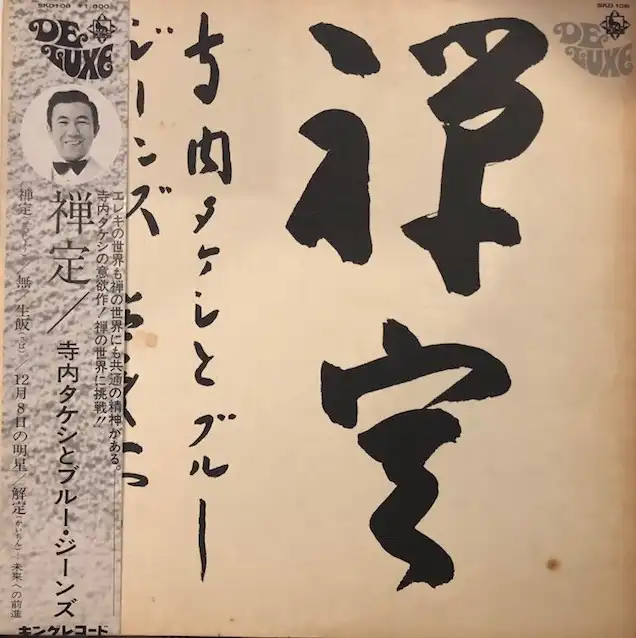 SKD108 ¥1,800
DE LUXE
エレキの世界も禅の世界にも共通の精神がある。
寺内タケシの意欲作! 禅の世界に挑戦!!
禅定/寺内タケシとブルー・ジーンズ
禅定(ぜんじょう)/無/生飯(さば)/12月8日の明星/解定(かいちん)—未来への前進
キングレコード
SKD 108
DE LUXE
禅定
寺内タケシとブルー
ジーンズ